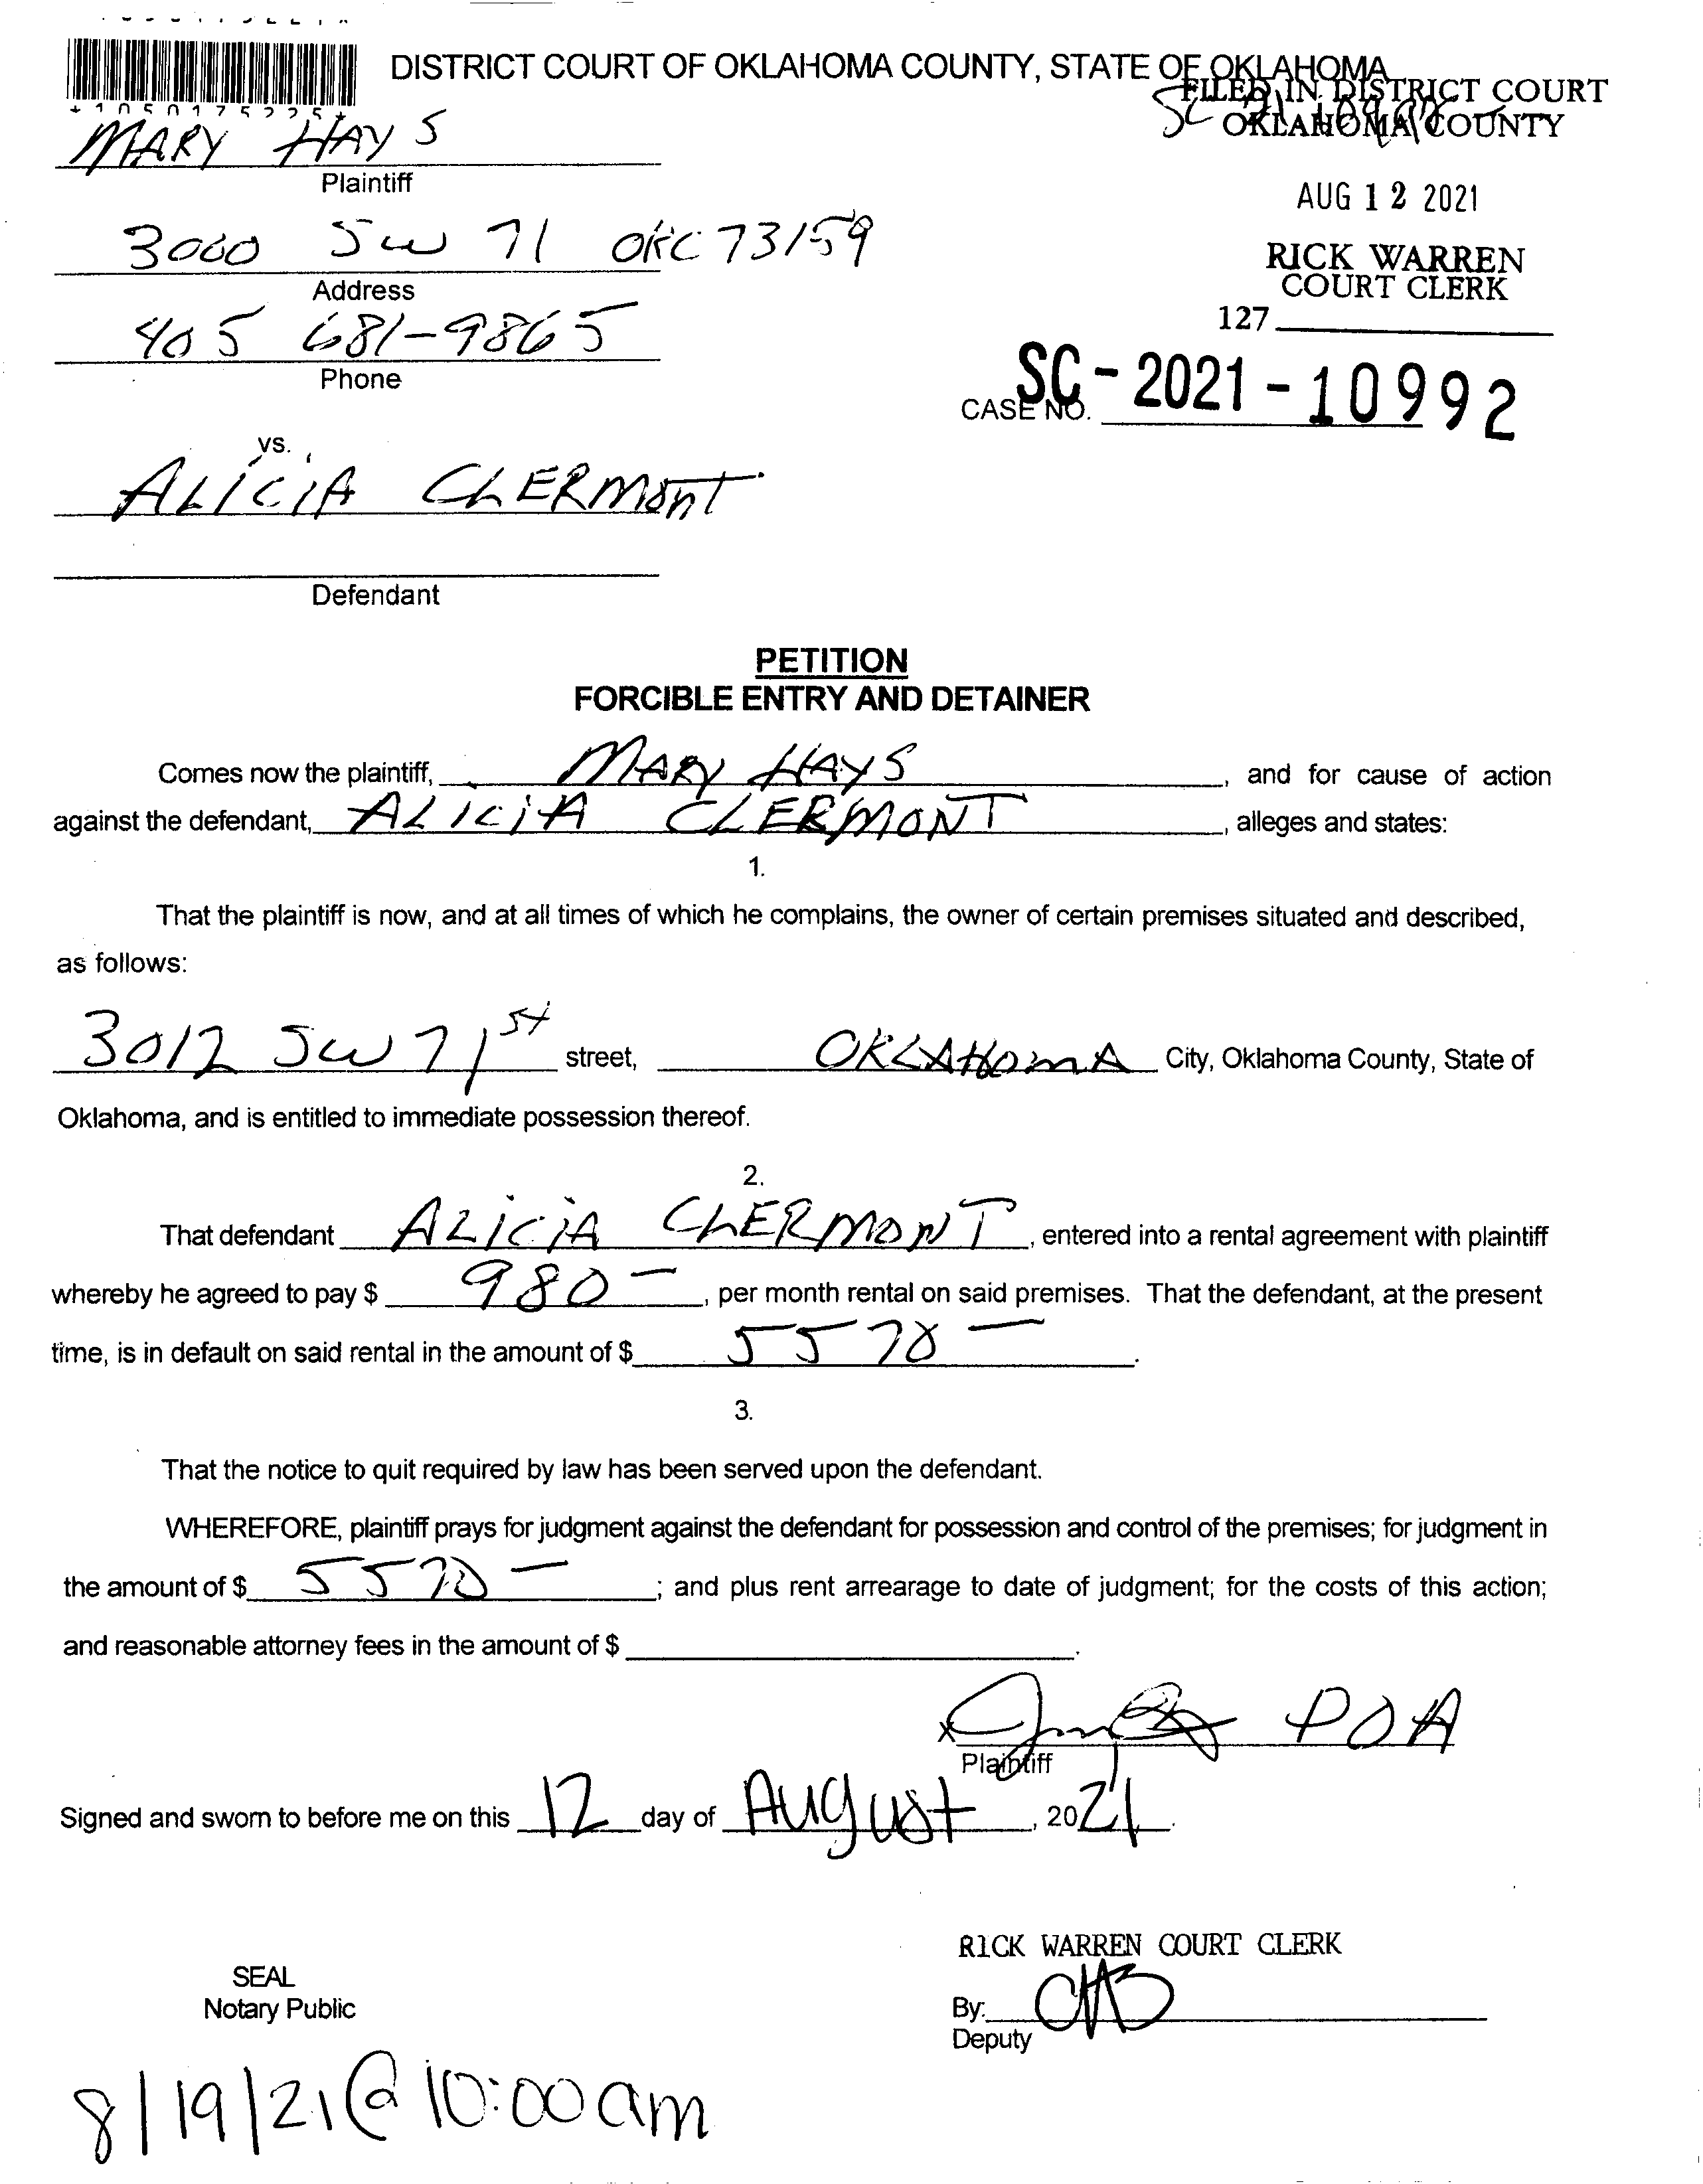 DISTRICT COURT OF OKLAHOMA COUNTY, STATE OF OKLAHOMA
FILED IN DISTRICT COURT
OKLAHOMA COUNTY
*1050175225*
MARY HAYS
Plaintiff
AUG 12 2021
3000 SW 71 OKC 73159
Address
RICK WARREN
COURT CLERK
405 681-9865
Phone
127
CASE NO. SC-2021-10992
vs.
ALICIA CLERMONT
Defendant
PETITION
FORCIBLE ENTRY AND DETAINER
Comes now the plaintiff, MARY HAYS, and for cause of action
against the defendant, ALICIA CLERMONT, alleges and states:
1.
That the plaintiff is now, and at all times of which he complains, the owner of certain premises situated and described,
as follows:
3012 SW 71st street, OKLAHOMA City, Oklahoma County, State of
Oklahoma, and is entitled to immediate possession thereof.
2.
That defendant ALICIA CLERMONT, entered into a rental agreement with plaintiff
whereby he agreed to pay $ 980-, per month rental on said premises. That the defendant, at the present
time, is in default on said rental in the amount of $ 5570-.
3.
That the notice to quit required by law has been served upon the defendant.
WHEREFORE, plaintiff prays for judgment against the defendant for possession and control of the premises; for judgment in
the amount of $ 5570-; and plus rent arrearage to date of judgment; for the costs of this action;
and reasonable attorney fees in the amount of $ .
x POA
Plaintiff
Signed and sworn to before me on this 12 day of August, 2021.
RICK WARREN COURT CLERK
SEAL
Notary Public
By:
Deputy
8/19/21 @ 10:00am